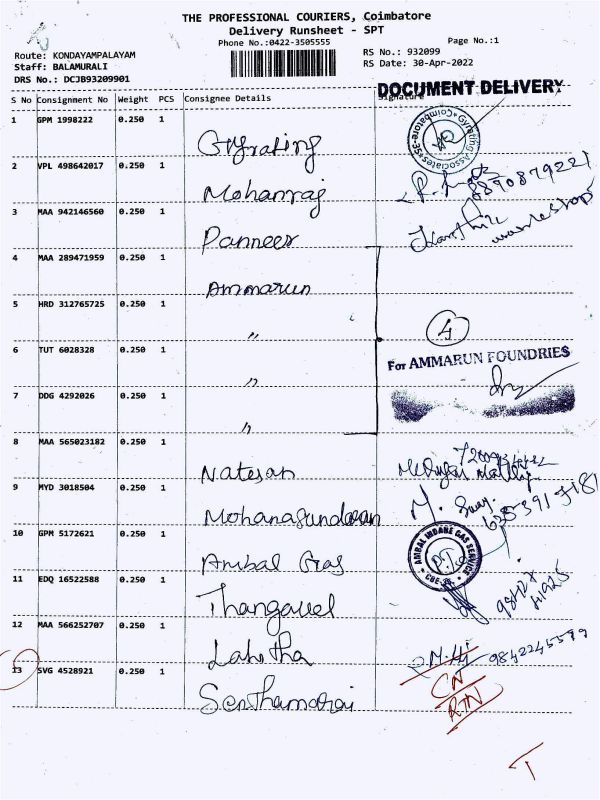 THE PROFESSIONAL COURIERS, Coimbatore
Delivery Runsheet - SPT
Phone No.:0422-3505555
Page No.:1
Route: KONDAYAMPALAYAM
RS No.: 932099
Staff: BALAMURALI
RS Date: 30-Apr-2022
DRS No.: DCJB93209901
DOCUMENT DELIVERY
S No Consignment No Weight PCS Consignee Details Signature
1 GPM 1998222 0.250 1 Gyrating
2 VPL 498642017 0.250 1 Mohanraj
8890879221
3 MAA 942146560 0.250 1 Panneer
4 MAA 289471959 0.250 1 Ammarun
5 HRD 312765725 0.250 1 "
4
6 TUT 6028328 0.250 1 "
For AMMARUN FOUNDRIES
7 DDG 4292026 0.250 1 "
8 MAA 565023182 0.250 1 Natesan
9 MYD 3018504 0.250 1 Mohanasundaram
10 GPM 5172621 0.250 1 Ambal Gas
AMBAL INDANE GAS SERVICE
11 EDQ 16522588 0.250 1 Thangavel
12 MAA 566252707 0.250 1 Lahitha
9842245599
13 SVG 4528921 0.250 1 Senthamarai
CN
RTN
T